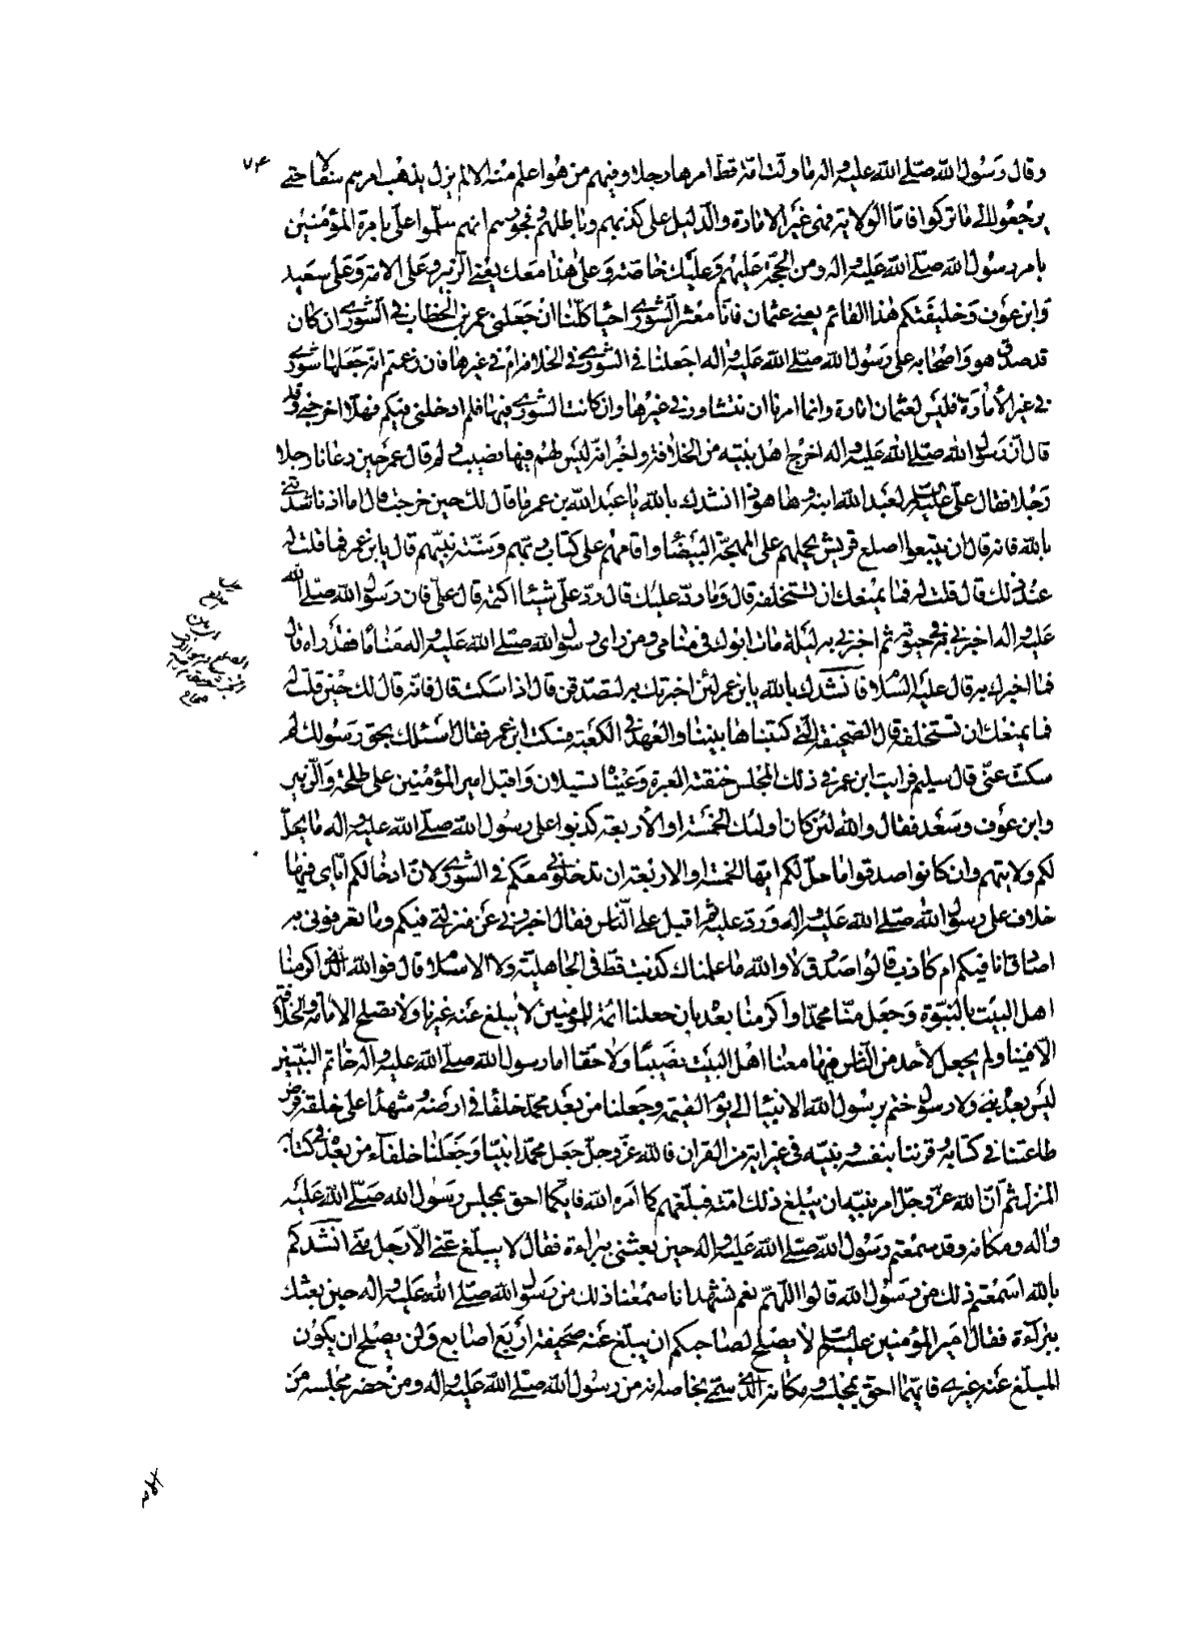 ۷۴
وقال رسول الله صلّى الله عليه واله ما ولّت امّة قط امرها رجلا وفيهم من هو اعلم منه الا لم يزل يذهب امرهم سفالا حتى
يرجعوا الى ما تركوا فامّا الولاية فهى غير الامارة والدليل على كذبهم وباطلهم وفجورهم انهم سلّموا علىّ بامرة المؤمنين
بامر رسول الله صلّى الله عليه واله ومن الحجّة عليهم وعليك خاصة وعلى هذا معك يعنى الزبير وعلى الامة وعلى سعيد
وابن عوف وخليفتكم هذا القائم يعنى عثمان فانا معشر الشورى احياء كلّنا ان جعلنى عمر بن الخطاب فى الشورى ان كان
قد صدق هو واصحابه على رسول الله صلّى الله عليه واله اجعلنا فى الشورى فى الخلافة ام فى غيرها فان زعمتم انه جعلها شورى
فى غير الأمارة فليس لعثمان امارة وانما امرنا ان نتشاور فى غيرها وان كانت الشورى فيها فلم ادخلنى فيكم فهلّا اخرجنى وقد
قال انّ رسول الله صلّى الله عليه واله اخرج اهل بيته من الخلافة واخبر انه ليس لهم فيها نصيب ولم قال عمر حين دعانا رجلا
رجلا فقال علىّ عليه السلم لعبد الله ابنه وها هو ذا انشدك بالله يا عبد الله بن عمر ما قال لك حين خرجت قال اما اذ ناشدتنى
بالله فانه قال ان يتبعوا اصلع قريش يحملهم على المهجّة البيضاء واقامهم على كتاب ربّهم وسنّة نبيّهم قال يا بن عمر فما قلت له
عند ذلك قال قلت له فما يمنعك ان تستخلفه قال وما ردّ عليك قال ردّ علىّ شيئا اكتمه قال علىّ فان رسول الله صلّى الله
عليه واله اخبرنى به فى حيوته ثم اخبرنى به ليلة مات ابوك فى منامى ومن راى رسول الله صلّى الله عليه واله مناما فقد راه قال
فما اخبرك به قال عليه السّلام فانشدك بالله يا بن عمر لئن اخبرتك به لتصدقن قال اذا سكت قال فانه قال لك حين قلت له
فما يمنعك ان تستخلفه قال الصحيفة التى كتبناها بيننا والعهد فى الكعبة فسكت ابن عمر فقال اسئلك بحق رسولك لم
سكتّ عنّى قال سليم فرايت ابن عمر فى ذلك المجلس خنقته العبرة وعيناه تسيلان واقبل امير المؤمنين على طلحة والزبير
وابن عوف وسعد فقال والله لئن كان اولئك الخمسة او الأربعة كذبوا على رسول الله صلّى الله عليه واله ما يحلّ
لكم ولايتهم وان كانوا صدقوا ما حلّ لكم ايّها الخمسة او الاربعة ان تدخلونى معكم فى الشورى لانّ ادخالكم ايّاى فيها
خلاف على رسول الله صلّى الله عليه واله وردّ عليه ثم اقبل على النّاس فقال اخبرونى عن منزلتى فيكم وما تعرفونى به
اصادق انا فيكم ام كاذب قالوا صدوق لا والله ما علمناك كذبت قطّ فى الجاهلية ولا الاسلام قال فوالله الذى اكرمنا
اهل البيت بالنبوّة وجعل منّا محمّدا واكرمنا بعد بان جعلنا ائمّة للمؤمنين لا يبلغ عنه غيرنا ولا تصلح الامامة والخلافة
الّا فينا ولم يجعل لأحد من النّاس فيها معنا اهل البيت نصيبا ولا حقّا اما رسول الله صلّى الله عليه واله خاتم النبيّين
ليس بعده نبى ولا رسول ختم برسول الله الانبياء الى يوم القيمة وجعلنا من بعد محمّد خلفاء فى ارضه وشهداء على خلقه فرض
طاعتنا فى كتابه وقرننا بنفسه ونبيّه فى غير اية من القران فالله عزّ وجلّ جعل محمّدا نبيّا وجعلنا خلفاء من بعده فى كتابه
المنزل ثم انّ الله عزّ وجلّ امر نبيّه ان يبلغ ذلك امته فبلّغهم كما امره الله فايّكما احق بمجلس رسول الله صلّى الله عليه
واله ومكانه وقد سمعتم رسول الله صلّى الله عليه واله حين بعثنى ببراءة فقال لا يبلّغ عنّى الّا رجل منّى انشدكم
بالله اسمعتم ذلك من رسول الله قالوا اللّهمّ نعم نشهد انا سمعنا ذلك من رسول الله صلّى الله عليه واله حين بعثك
ببراءة فقال امير المؤمنين عليه السلم لا يصلح لصاحبكم ان يبلّغ عنه صحيفة اربع اصابع ولن يصلح ان يكون
المبلّغ عنه غيرى فايّهما احقّ بمجلسه ومكانه الذى سمّى بخاصة انه من رسول الله صلّى الله عليه واله ومن حضر مجلسه من
الامة